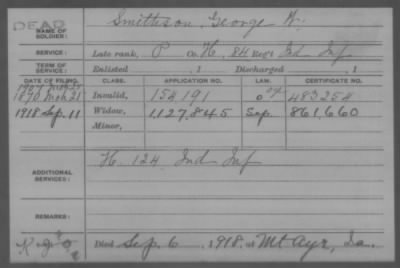 DEAD
NAME OF SOLDIER: Smithson, George W.
SERVICE: Late rank, P Co. H, 84 Reg't Ind Inf
TERM OF SERVICE: Enlisted , 1 Discharged , 1
DATE OF FILING. CLASS. APPLICATION NO. LAW. CERTIFICATE NO.
1870 Mch 21 Invalid, 154191 483254
1918 Sep. 11 Widow, 1,127,845 Sep. 861,660
Minor,
ADDITIONAL SERVICES: H. 124 Ind Inf
REMARKS:
Died Sep. 6, 1918, at Mt Ayr, Ia.